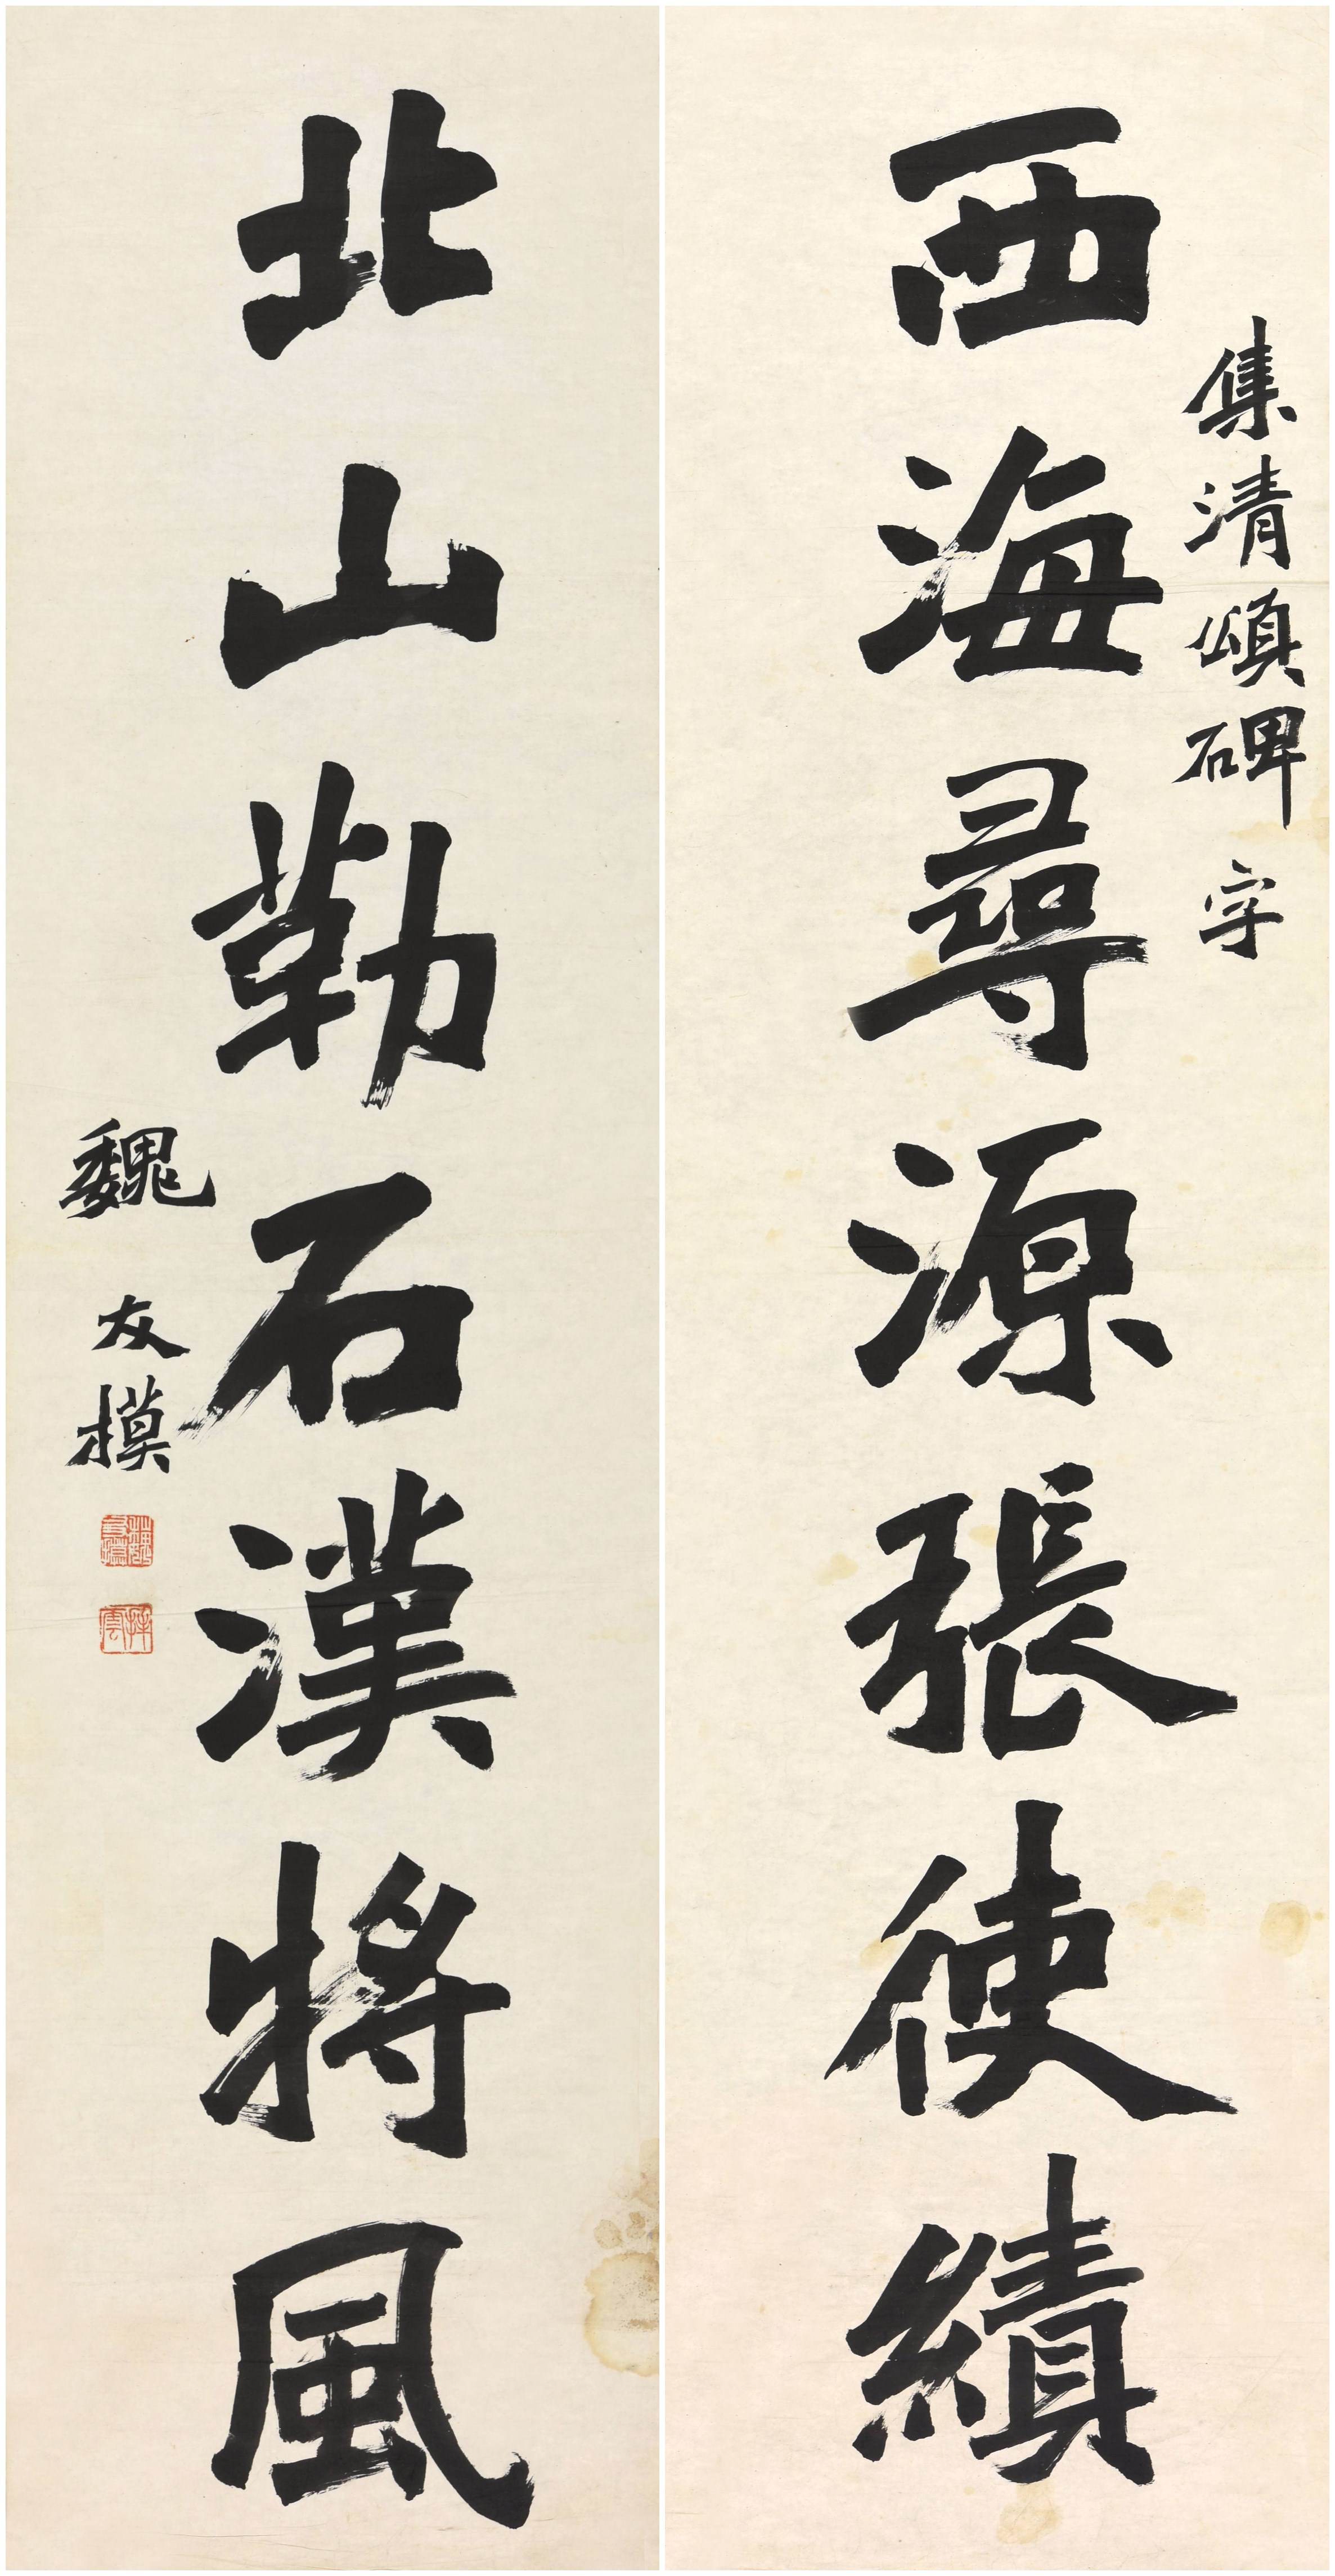 集清頌碑字
西海尋源張使績
北山勒石漢將風
魏友模